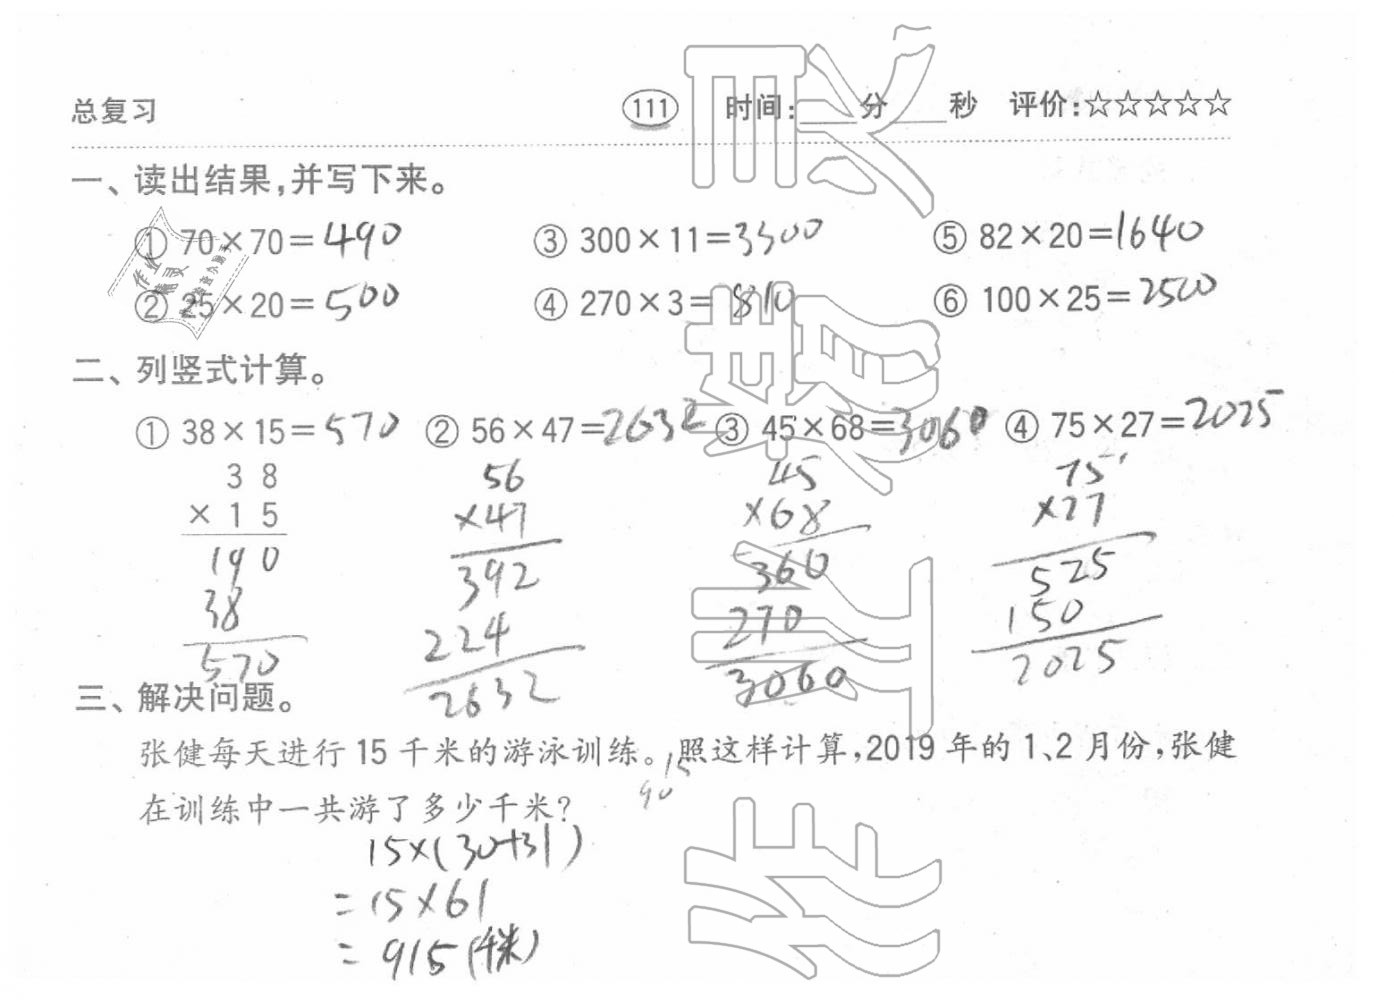 总复习 111 时间: 分 秒 评价:☆☆☆☆☆
一、读出结果,并写下来。
① 70×70=490 ③ 300×11=3300 ⑤ 82×20=1640
② 25×20=500 ④ 270×3=810 ⑥ 100×25=2500
二、列竖式计算。
① 38×15=570 ② 56×47=2632 ③ 45×68=3060 ④ 75×27=2025
38 56 45 75
×15 ×47 ×68 ×27
190 392 360 525
38 224 270 150
570 2632 3060 2025
三、解决问题。
张健每天进行 15 千米的游泳训练。照这样计算,2019 年的 1、2 月份,张健
15
90
在训练中一共游了多少千米?
15×(30+31)
=15×61
=915(千米)